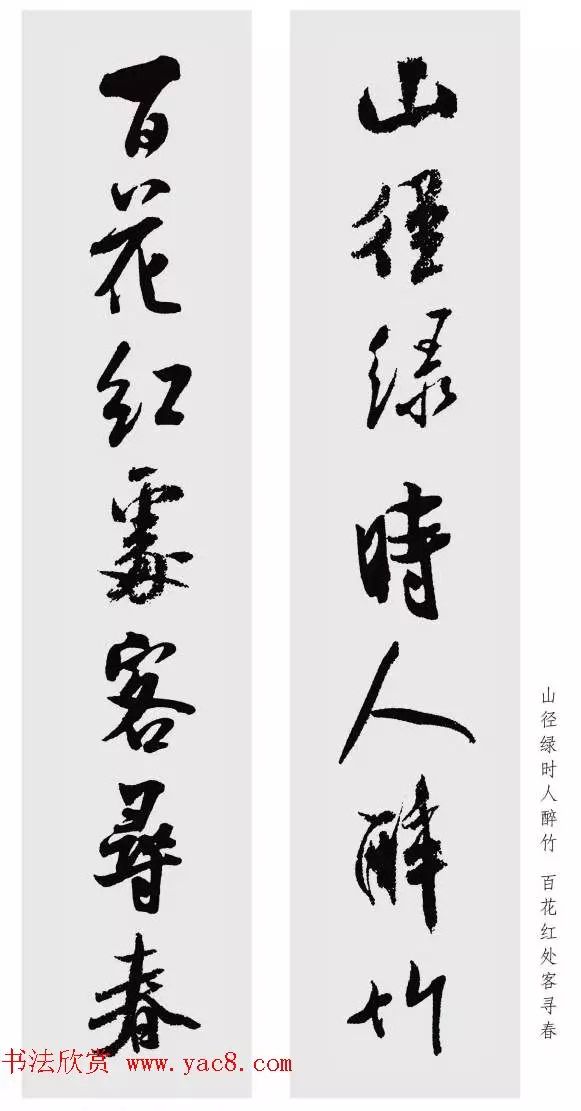 山径绿時人醉竹
百花红處客尋春
山径绿时人醉竹 百花红处客寻春
书法欣赏 www.yac8.com